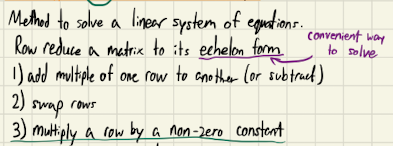 Method to solve a linear system of equations.
Row reduce a matrix to its echelon form
convenient way
to solve
1) add multiple of one row to another (or subtract)
2) swap rows
3) multiply a row by a non-zero constant